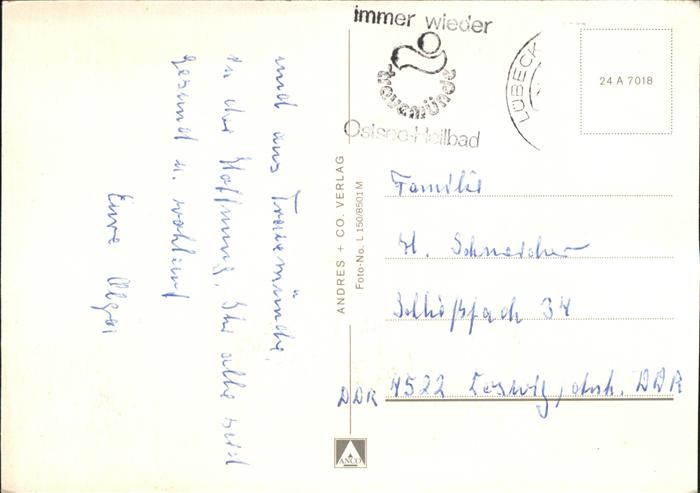 und aus Travemünde,
in der Hoffnung, Ihr alle seid
gesund u. wohlauf
Eure Olga
immer wieder
travemünde
Ostsee-Heilbad
LÜBECK
24 A 7018
ANDRES + CO. VERLAG
Foto-No. L 150/8501 M
Familie
H. Schneider
Schließfach 34
DDR 4522 Coswig, Anh. DDR
ANCO